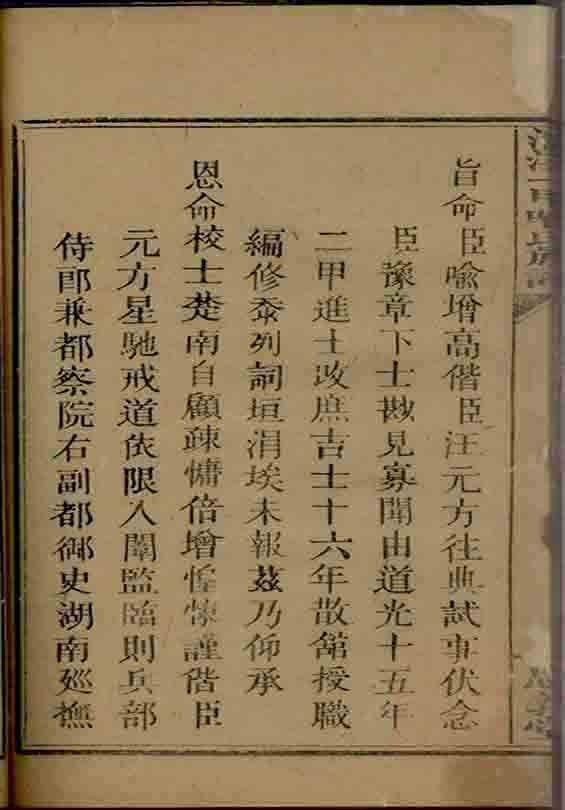 旨命臣喻增高偕臣汪元方往典試事伏念
臣豫章下士尠見寡聞由道光十五年
二甲進士改庶吉士十六年散舘授職
編修忝列詞垣涓埃未報茲乃仰承
恩命校士楚南自顧疎慵倍增惶悚謹偕臣
元方星馳戒道依限入闈監臨則兵部
侍郎兼都察院右副都御史湖南廵撫